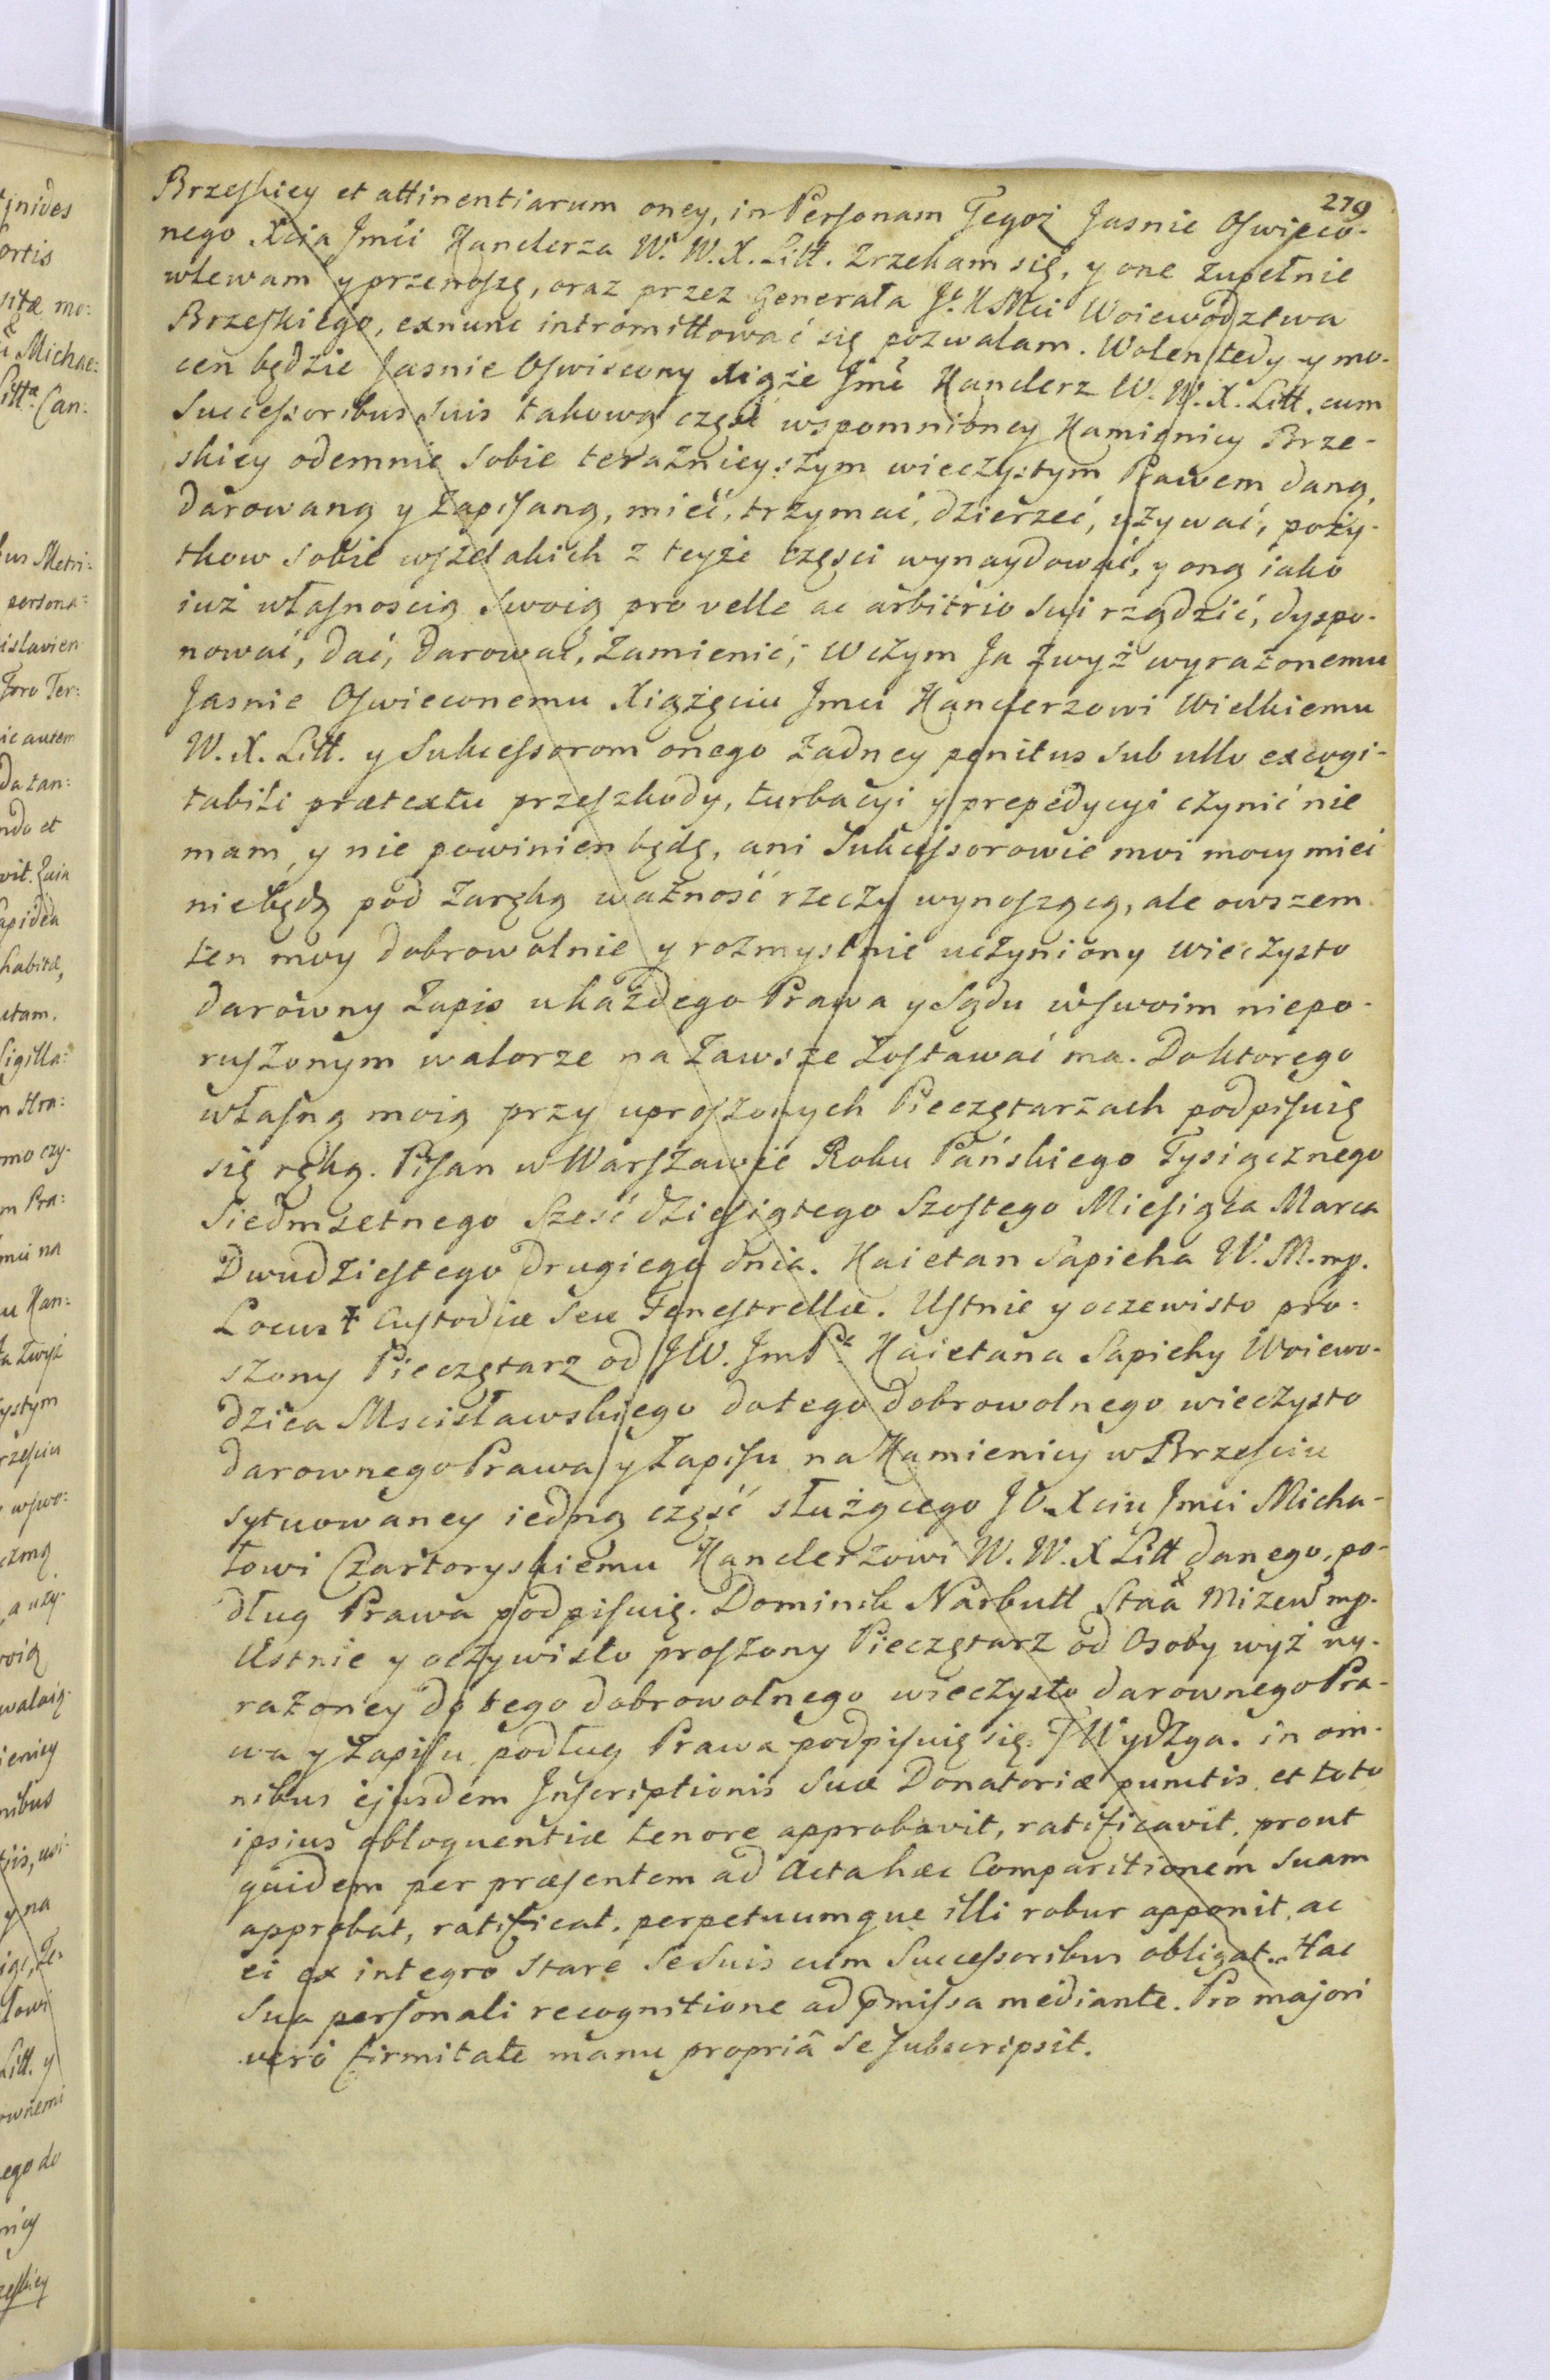 279
Brzeskiey et attinentiarum oney, in Personam Tegoż Jasnie Oswieco-
nego Xcia Jmci Kanclerza W. W. X. Litt. zrzekam się, y one zupełnie
wlewam y przenoszę, oraz przez Generała J. K. Mci Woiewodztwa
Brzeskiego, exnunc intromittować się pozwalam. Wolen tedy y mo-
cen będzie Jasnie Oswiecony Xiąże Jmć Kanclerz W. W. X. Litt. cum
Successoribus suis takową część wspomnioney Kamienicy Brze-
skiey odemnie sobie teraznieyszym wieczystym Prawem daną,
darowaną y zapisaną, mieć, trzymać, dzierżeć, używać, poży-
tkow sobie wszelakich z teyże części wynaydować, y oną iako
iuż własnością swoią pro velle ac arbitrio sui rządzić, dyspo-
nować, dać, darować, zamienić; Wczym Ja zwyż wyrażonemu
Jasnie Oswieconemu Xiążęciu Jmci Kanclerzowi Wielkiemu
W. X. Litt. y Sukcessorom onego żadney penitus sub ullo excogi-
tabili prætextu przeszkody, turbacyi y prepedycyi czynić nie
mam, y nie powinien będę, ani Sukcessorowie moi mocy mieć
niebędą pod zaręką ważność rzeczy wynoszącą, ale owszem
ten moy dobrowolnie y rozmyslnie uczyniony wieczysto
darowny zapis ukażdego Prawa y Sądu wswoim niepo-
ruszonym walorze na zawsze zostawać ma. Doktorego
własną moią przy uproszonych Pieczętarzach podpisuię
się ręką. Pisan w Warszawie Roku Pańskiego Tysiącznego
Siedmsetnego Sześćdziesiątego Szostego Miesiąca Marca
Dwudziestego drugiego dnia. Kaietan Sapieha W. M. mp.
Locus ✝ Custodiæ seu Fenestrellæ. Ustnie y oczewisto pro-
szony Pieczętarz od JW. Jm Pa Kaietana Sapiehy Woiewo-
dzica Mscisławskiego dotego dobrowolnego wieczysto
darownego Prawa y zapisu na Kamienicy w Brzesciu
sytuowaney iedną część służącego J O. Xciu Jmci Micha-
łowi Czartoryskiemu Kanclerzowi W. W. X Litt danego, po-
dług Prawa podpisuię. Dominik Narbutt Staa Mizew mp.
Ustnie y oczywisto proszony Pieczętarz od Osoby wyż wy-
rażoney do tego dobrowolnego wieczysto darownego Pra-
wa y zapisu podług Prawa podpisuię się. J Wydzga. in om-
nibus ejusdem Inscriptionis suæ Donatoriæ punctis et toto
ipsius obloquentiæ tenore approbavit, ratificavit, prout
quidem per præsentem ad Acta hæc Comparitionem suam
approbat, ratificat, perpetuumque illi robur apponit, ac
ei ex integro stare se suis cum Successoribus obligat. Hac
sua personali recognitione ad p̄missa mediante. Pro majori
vero firmitate manu propriâ se subscripsit.